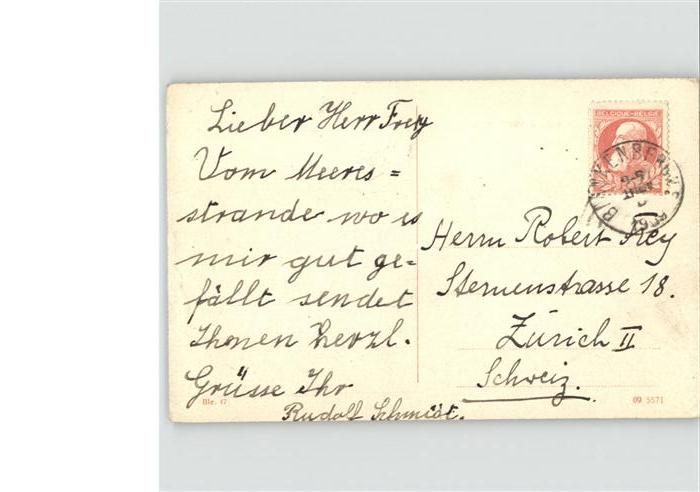 Lieber Herr Frey
Vom Meeres=
strande wo es
mir gut ge=
fällt sendet
Ihnen herzl.
Grüsse Ihr
Rudolf Schmidt.
BELGIQUE-BELGIË
BLANKENBERGHE
Herrn Robert Frey
Sternenstrasse 18.
Zürich II
Schweiz.
Ble. 47
09 5571